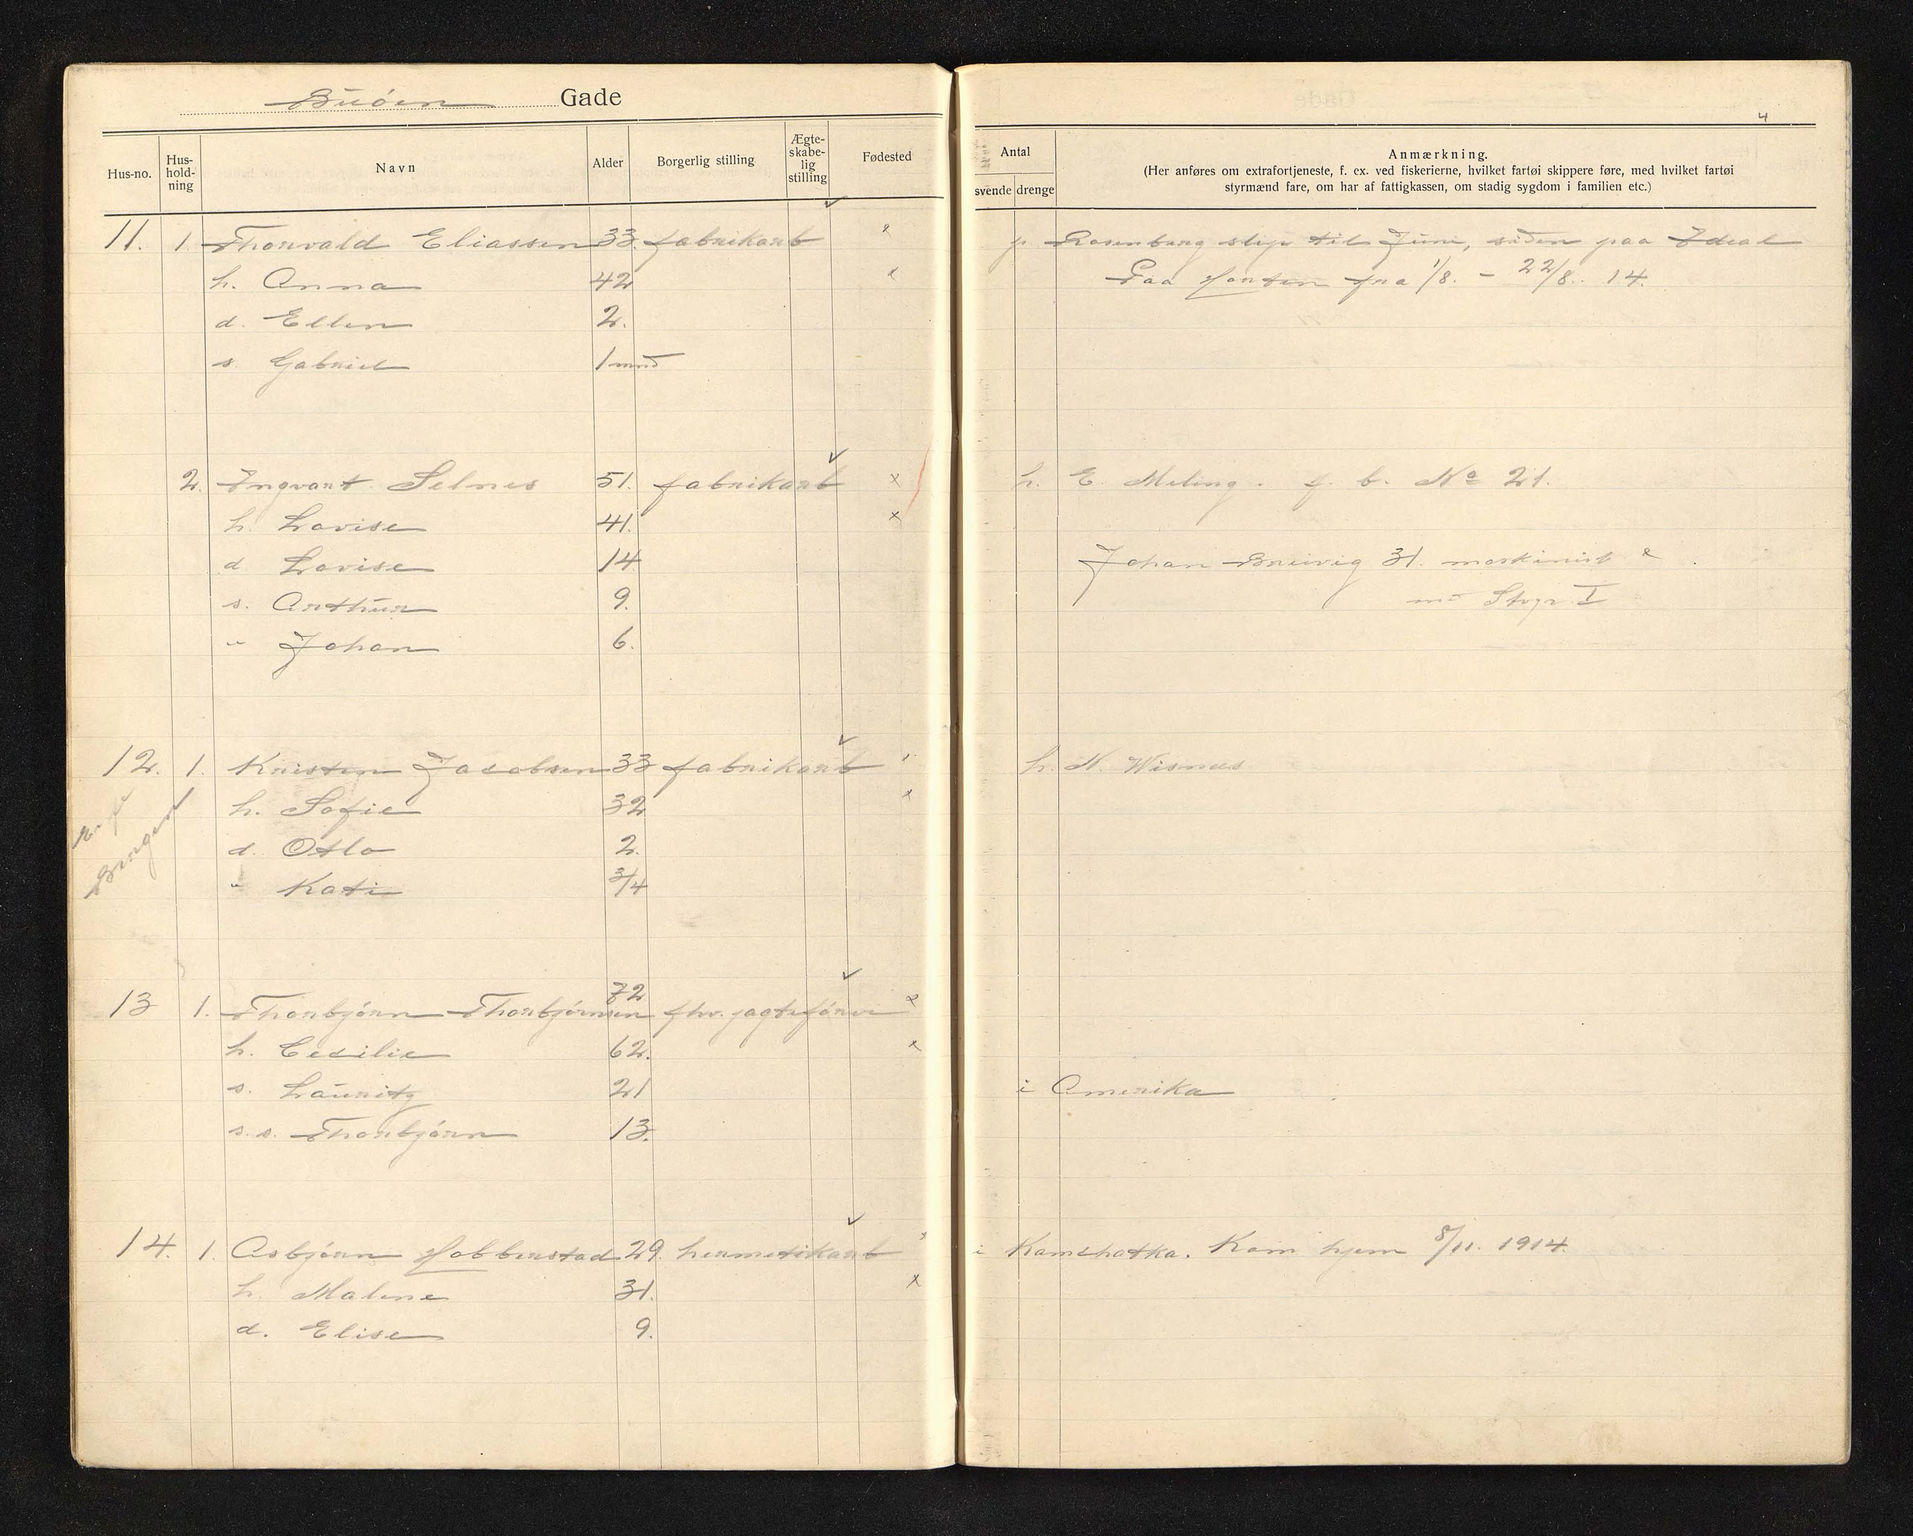 Buöen Gade
4
Hus-no. Hus-hold-ning Navn Alder Borgerlig stilling Ægte-skabe-lig stilling Fødested
Antal
svende drenge
Anmærkning.
(Her anføres om extrafortjeneste, f. ex. ved fiskerierne, hvilket fartøi skippere føre, med hvilket fartøi
styrmænd fare, om har af fattigkassen, om stadig sygdom i familien etc.)
11. 1. Thorvald Eliassen 33. fabrikarb x p. Rosenberg slip til Juni, siden paa Ideal
h. Anna 42 x Paa Horten fra 1/8. - 22/8. 14.
d. Ellen 2.
s Gabriel 1 mnd
2. Ingvart Selnes 51. fabrikarb x h. E. Meling. f. b. No 21.
h. Lovise 41. x
d Lovise 14 Johan Breivig 31. maskinist x
s. Arthur 9. Styr I
" Johan 6.
12. 1. Kristen Jacobsen 33 fabrikarb " h. N. Wisnæs
h. Sofie 32 x
d. Otlo 2.
" Kati 3/4
Bergen
13 1. Thorbjörn Thorbjörnsen 72 fhv. jagtsförer x
h. Cecilie 62. x
s. Lauritz 21 i Amerika
s.s. Thorbjörn 13.
14. 1. Asbjörn Hobberstad 29. hermetikarb x i Kamchatka. Kom hjem 8/11. 1914.
h. Malene 31. x
d. Elise 9.